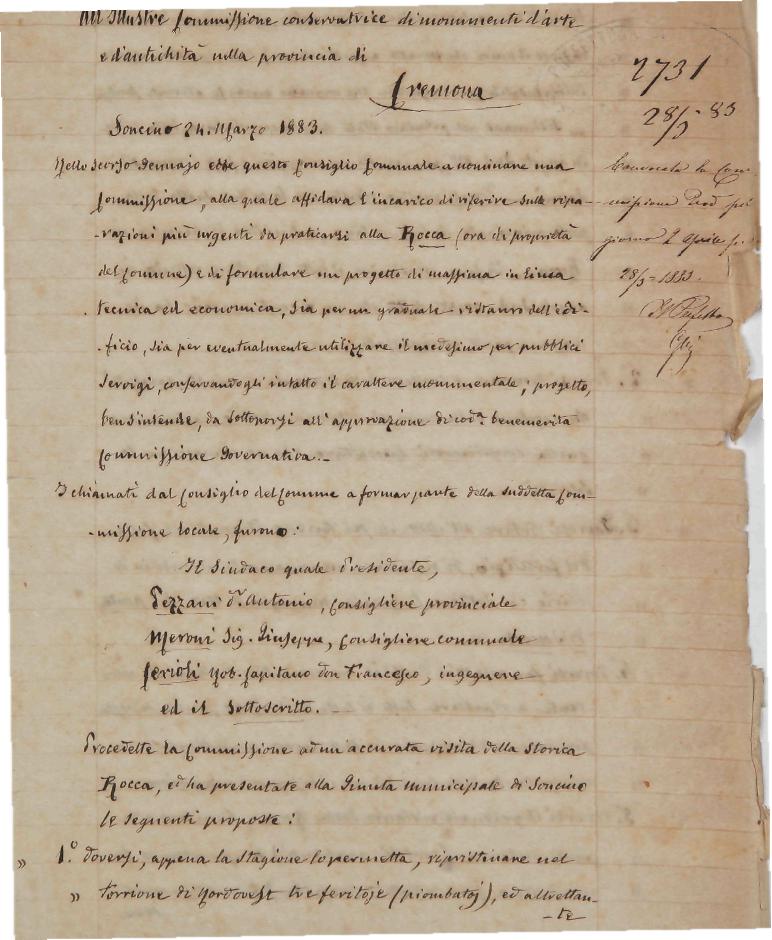 All'Illustre Commissione conservatrice di monumenti d'arte
e d'antichità nella provincia di
Cremona
Soncino 24. Marzo 1883.
Nello scorso Gennajo ebbe questo Consiglio Comunale a nominare una
Commissione, alla quale affidava l'incarico di riferire sulle ripa-
-razioni più urgenti da praticarsi alla Rocca (ora di proprietà
del Comune) e di formulare un progetto di massima in linea
tecnica ed economica, sia per un graduale ristauro dell'edi-
-ficio, sia per eventualmente utilizzare il medesimo per pubblici
servigi, conservandogli intatto il carattere monumentale; progetto,
ben s'intende, da sottoporsi all'approvazione di cod.ª benemerita
Commissione Governativa.-
I chiamati dal Consiglio del Comune a formar parte della suddetta Com-
-missione locale, furono:
Il Sindaco quale Presidente,
Pezzani D.r Antonio, Consigliere provinciale
Meroni Sig. Giuseppe, Consigliere comunale
Cerioli Nob. Capitano don Francesco, ingegnere
ed il Sottoscritto.-
Procedette la Commissione ad un'accurata visita della storica
Rocca, ed ha presentate alla Giunta Municipale di Soncino
le seguenti proposte:
" 1.° Doversi, appena la stagione lo permetta, ripristinare nel
" torrione di Nordovest tre feritoje (piombatoj), ed altrettan-
-te
2731
28/3-83
Convocata la Com-
missione pel
giorno 2 Aprile
28/3-1883.
Il Prefetto